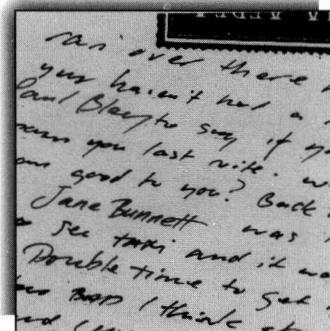 ran over there
you haven't had a
Paul Bley to say if yo
you last nite. w
good to you? Back
Jane Bunnett was
see taxi and it wa
Double time to get
BAD I think